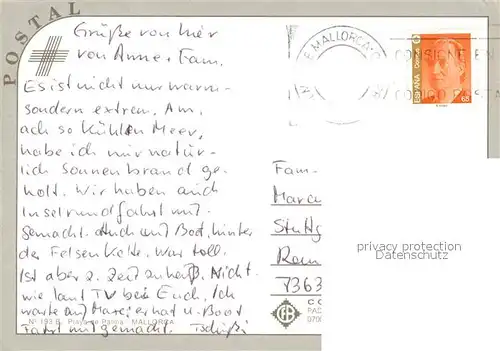 POSTAL
Grüße von hier
von Anne + Fam.
Es ist nicht nur warm -
sondern extrem. Am,
ach so kühlen Meer,
habe ich mir natür-
lich Sonnenbrand ge-
holt. Wir haben auch
Inselrundfahrt mit-
gemacht. Auch auf Boot, hinter
der Felsenkette. War toll.
Ist aber z. Zeit zu heiß. Nicht
wie laut TV bei Euch. Ich
warte auf Marc; er hat U-Boot
Fahrt mitgemacht. Tschüßi
Nº 193 B Playa de Palma MALLORCA
E MALLORCA
CONSIGNE EN
CODIGO POSTA
ESPAÑA
Correos
65
Fam.
Marc
Stuttg
Ram
7363
privacy protection
Datenschutz